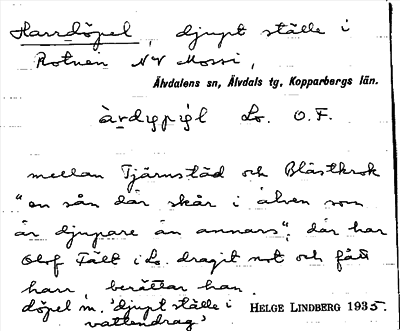 Harrdöpel, djupt ställe i
Rotnen NV Mossi,
Älvdalens sn, Älvdals tg, Kopparbergs län.
àrdypỳl Lo. O.F.
mellan Tjärnstäd och Blåstkrok
"en sån där skår i älven som
är djupare än annars", där har
Olof Fält i Lo. dragit not och fått
harr, berättar han.
döpel m. 'djupt ställe i
vattendrag'
HELGE LINDBERG 1935.